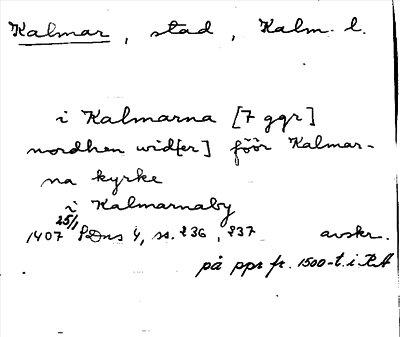 Kalmar, stad, Kalm. l.
i Kalmarna [7 ggr]
nordhen wid[er] föör Kalmar-
na kyrke
i Kalmarnaby
1407 25/1 SDns 1, ss. 236, 237 avskr.
på ppr fr. 1500-t. i RA